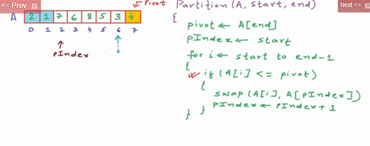 <-- Prev
Next -->
Pivot
A 2 1 7 6 8 5 3 4
0 1 2 3 4 5 6 7
pIndex
i
Partition (A, start, end)
{
pivot ← A[end]
pIndex ← start
for i ← start to end-1
{
if (A[i] <= pivot)
{
swap (A[i], A[pIndex])
pIndex ← pIndex + 1
}
}
}